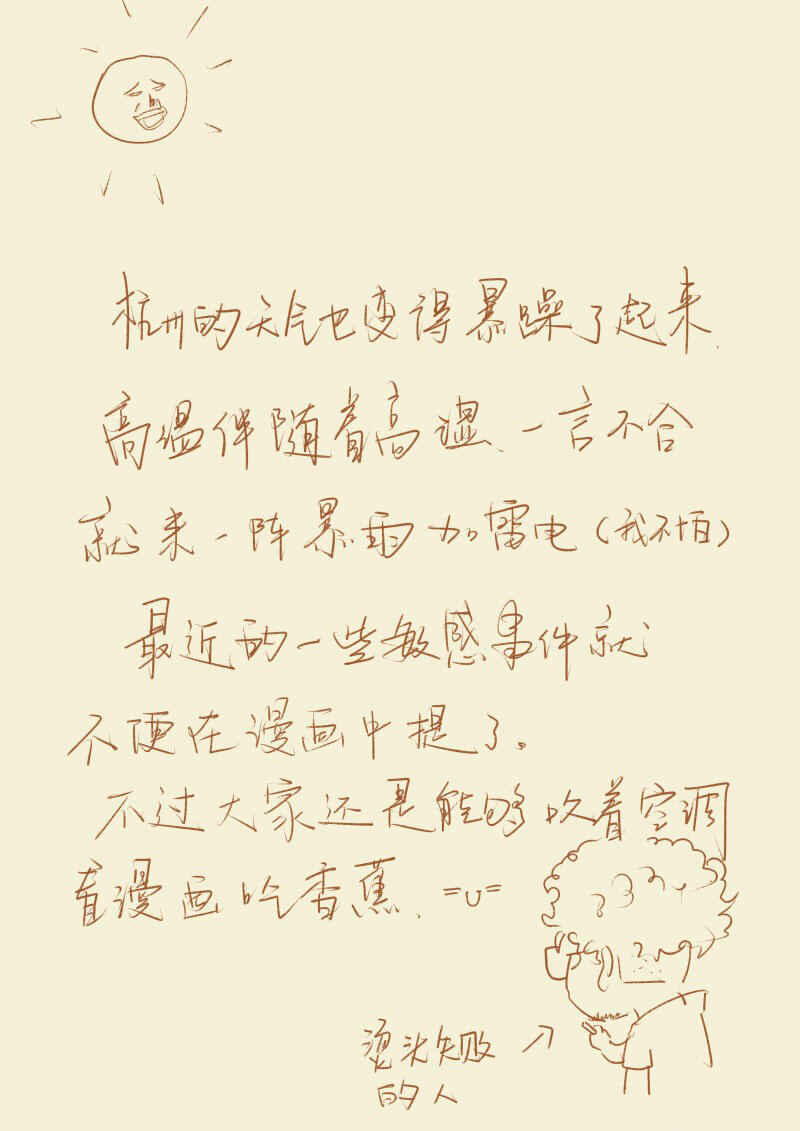 杭州的天气也变得暴躁了起来.
高温伴随着高温、一言不合
就来一阵暴雨加雷电(我不怕)
最近的一些敏感事件就
不便在漫画中提了。
不过大家还是能够吹着空调
看漫画吃香蕉. =υ=
烫头失败
的人